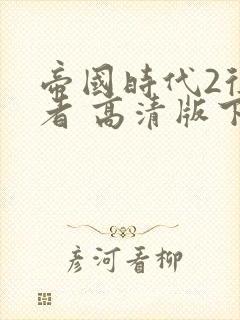 帝國時代2征
者 高清版下
彦河看柳